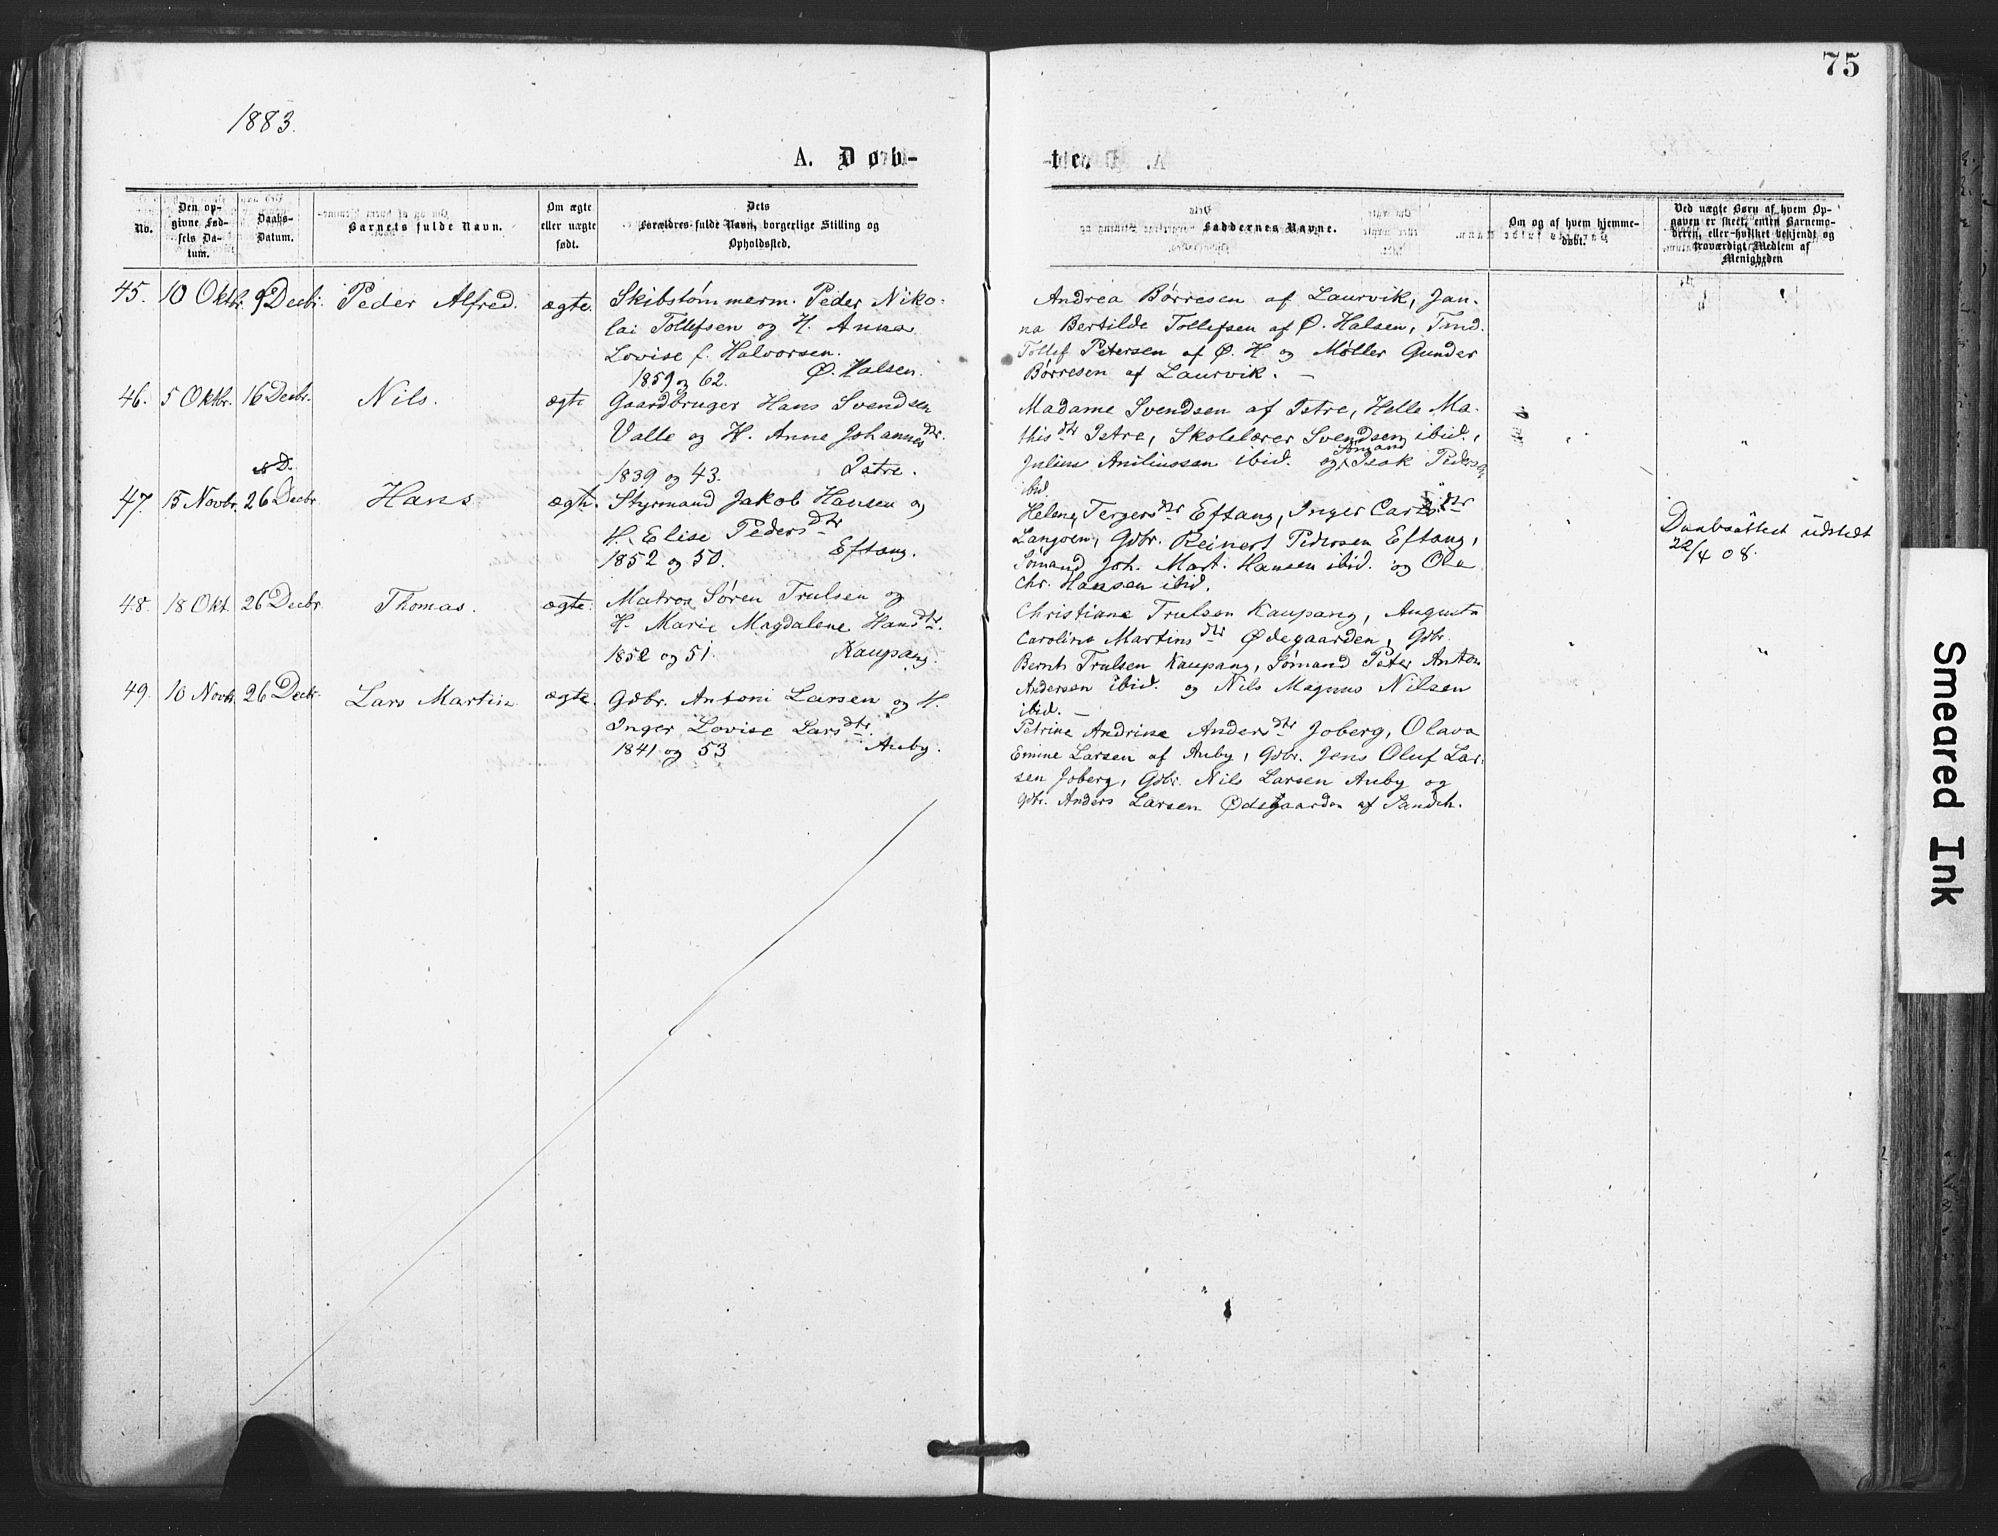 75
1883.
A. Døb-
te.
No.
Den op-
givne Fød-
sels Da-
tum.
Daabs-
Datum.
Barnets fulde Navn.
Om ægte
eller uægte
født.
Dets
Forældres fulde Navn, borgerlige Stilling og
Opholdssted.
Faddernes Navne.
Om og af hvem hjemme-
døbt.
Ved uægte Børn af hvem Op-
gaven er skeet, enten Barnemo-
deren, eller hvilket bekjendt og
troværdigt Medlem af
Menigheden
45. 10 Oktbr. 9 Decbr. Peder Alfred. ægte. Skibstømmerm. Peder Niko-
lai Tollefsen og H. Anna
Lovise f. Halvorsen.
1859 og 62. Ø. Halsen.
Andrea Børresen af Laurvik, Jan-
na Bertilde Tollefsen af Ø. Halsen, Tmd.
Tollef Petersen af Ø. H. og Møller Gunder
Børresen af Laurvik. —
46. 5 Oktbr. 16 Decbr. Nils. ægte Gaardbruger Hans Svendsen
Valle og H. Anne Johannesdtr.
1839 og 43. Istre.
Madame Svendsen af Istre, Helle Ma-
thisdtr Istre, Skolelærer Svendsen ibid.,
Julius Aniliussen ibid. og Sømand Isak Peders
ibid.
47. 15 Novbr. 26 Decbr. Hans ægte. Styrmand Jakob Hansen og
H. Elise Pedersdtr
1852 og 50. Eftang.
Helene Tergersdtr Eftang, Inger Carlsdtr
Langøen, Gdbr. Reinert Pedersen Eftang,
Sømand Joh. Mart. Hansen ibid. og Ole
Chr. Hansen ibid.
Daabsattest udstedt
22/4 08.
48. 18 Okt. 26 Decbr. Thomas. ægte. Matros Søren Trulsen og
H. Marie Magdalene Hansdtr.
1852 og 51. Kaupang.
Christiane Trulsen Kaupang, Augusta
Caroline Martinsdtr Ødegaarden, Gdbr.
Bernt Trulsen Kaupang, Sømand Peter Anton
Andersen ibid. og Nils Magnus Nilsen
ibid. —
49. 10 Novbr. 26 Decbr. Lars Martin. ægte. Gdbr. Antoni Larsen og H.
Inger Lovise Larsdtr.
1841 og 53 Auby.
Petrine Andrine Andersdtr Joberg, Olava
Emine Larsen af Auby, Gdbr. Jens Oluf Lar-
sen Joberg, Gdbr. Nils Larsen Auby og
Gdbr. Anders Larsen Ødegaarden af Sandeh.
Smeared Ink